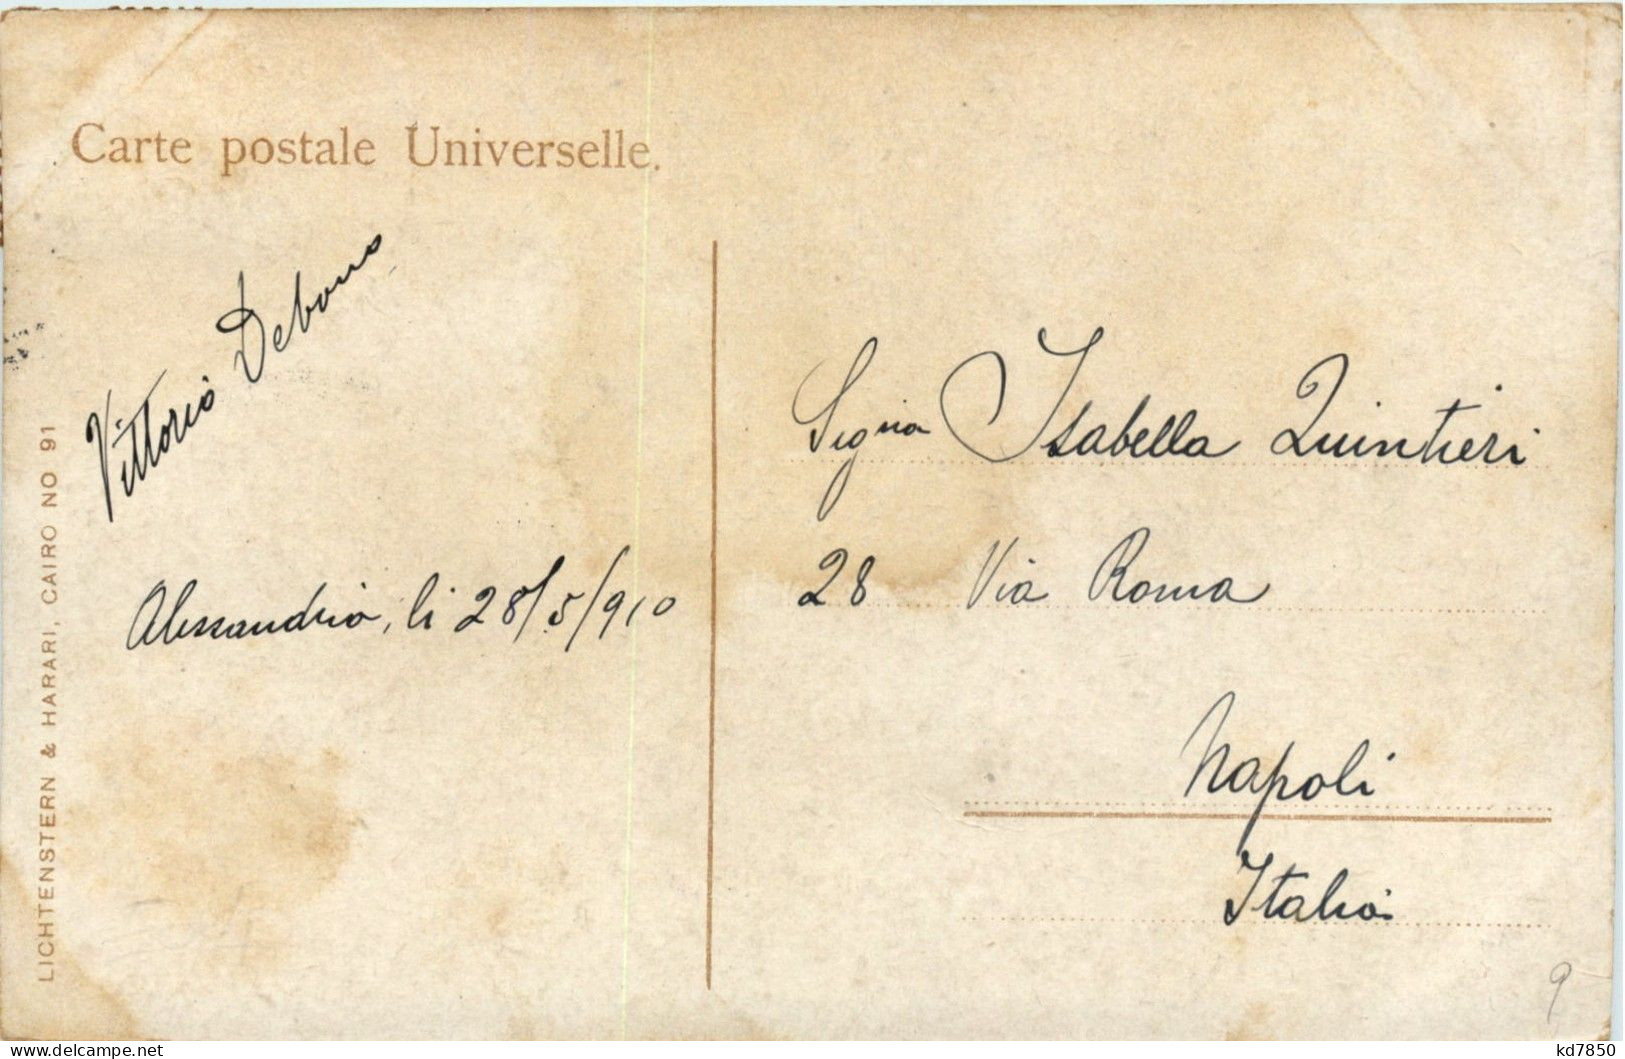 Carte postale Universelle.
Vittorio Debono
Alessandria, li 28/5/910
LICHTENSTERN & HARARI, CAIRO NO 91
Signa Isabella Quintieri
28 Via Roma
Napoli
Italia
9
kd7850